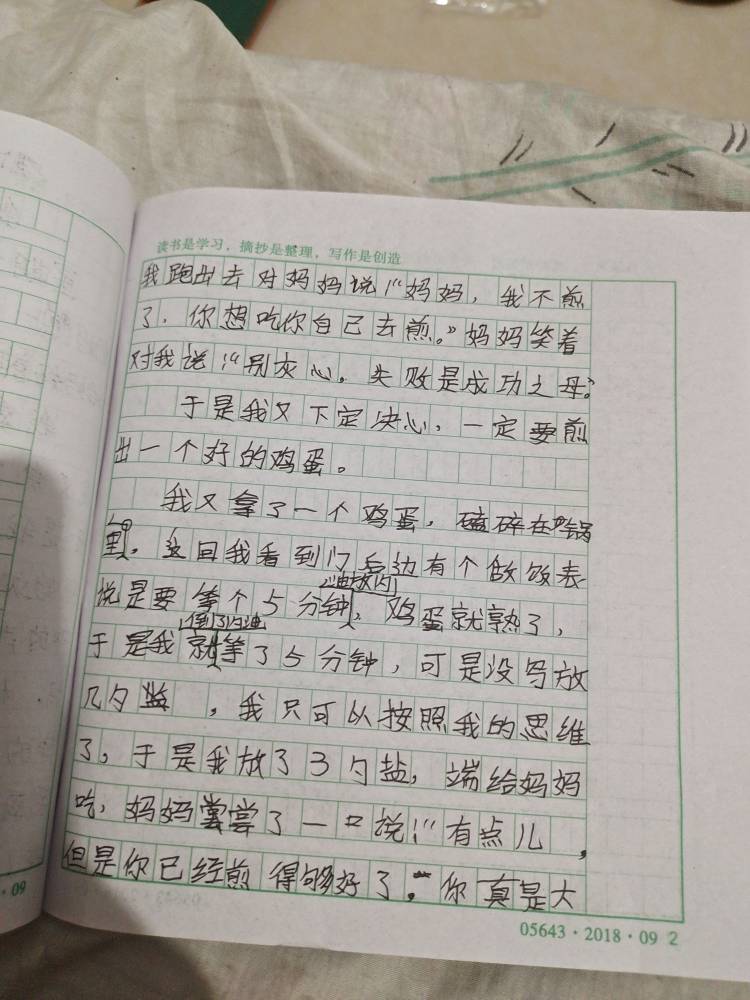 读书是学习，摘抄是整理，写作是创造
我跑出去对妈妈说：“妈妈，我不煎
了，你想吃你自己去煎。”妈妈笑着
对我说：“别灰心，失败是成功之母。”
于是我又下定决心，一定要煎
出一个好的鸡蛋。
我又拿了一个鸡蛋，磕碎在锅
里，这回我看到门后边有个做饭表
说是要等个5分钟，鸡蛋就熟了，
倒了闪油
于是我就等了5分钟，可是没写放
几勺盐，我只可以按照我的思维
了，于是我放了3勺盐，端给妈妈
吃，妈妈尝尝了一口说：“有点儿，
但是你已经煎得够好了。”你真是大
05643·2018·09 2
·09